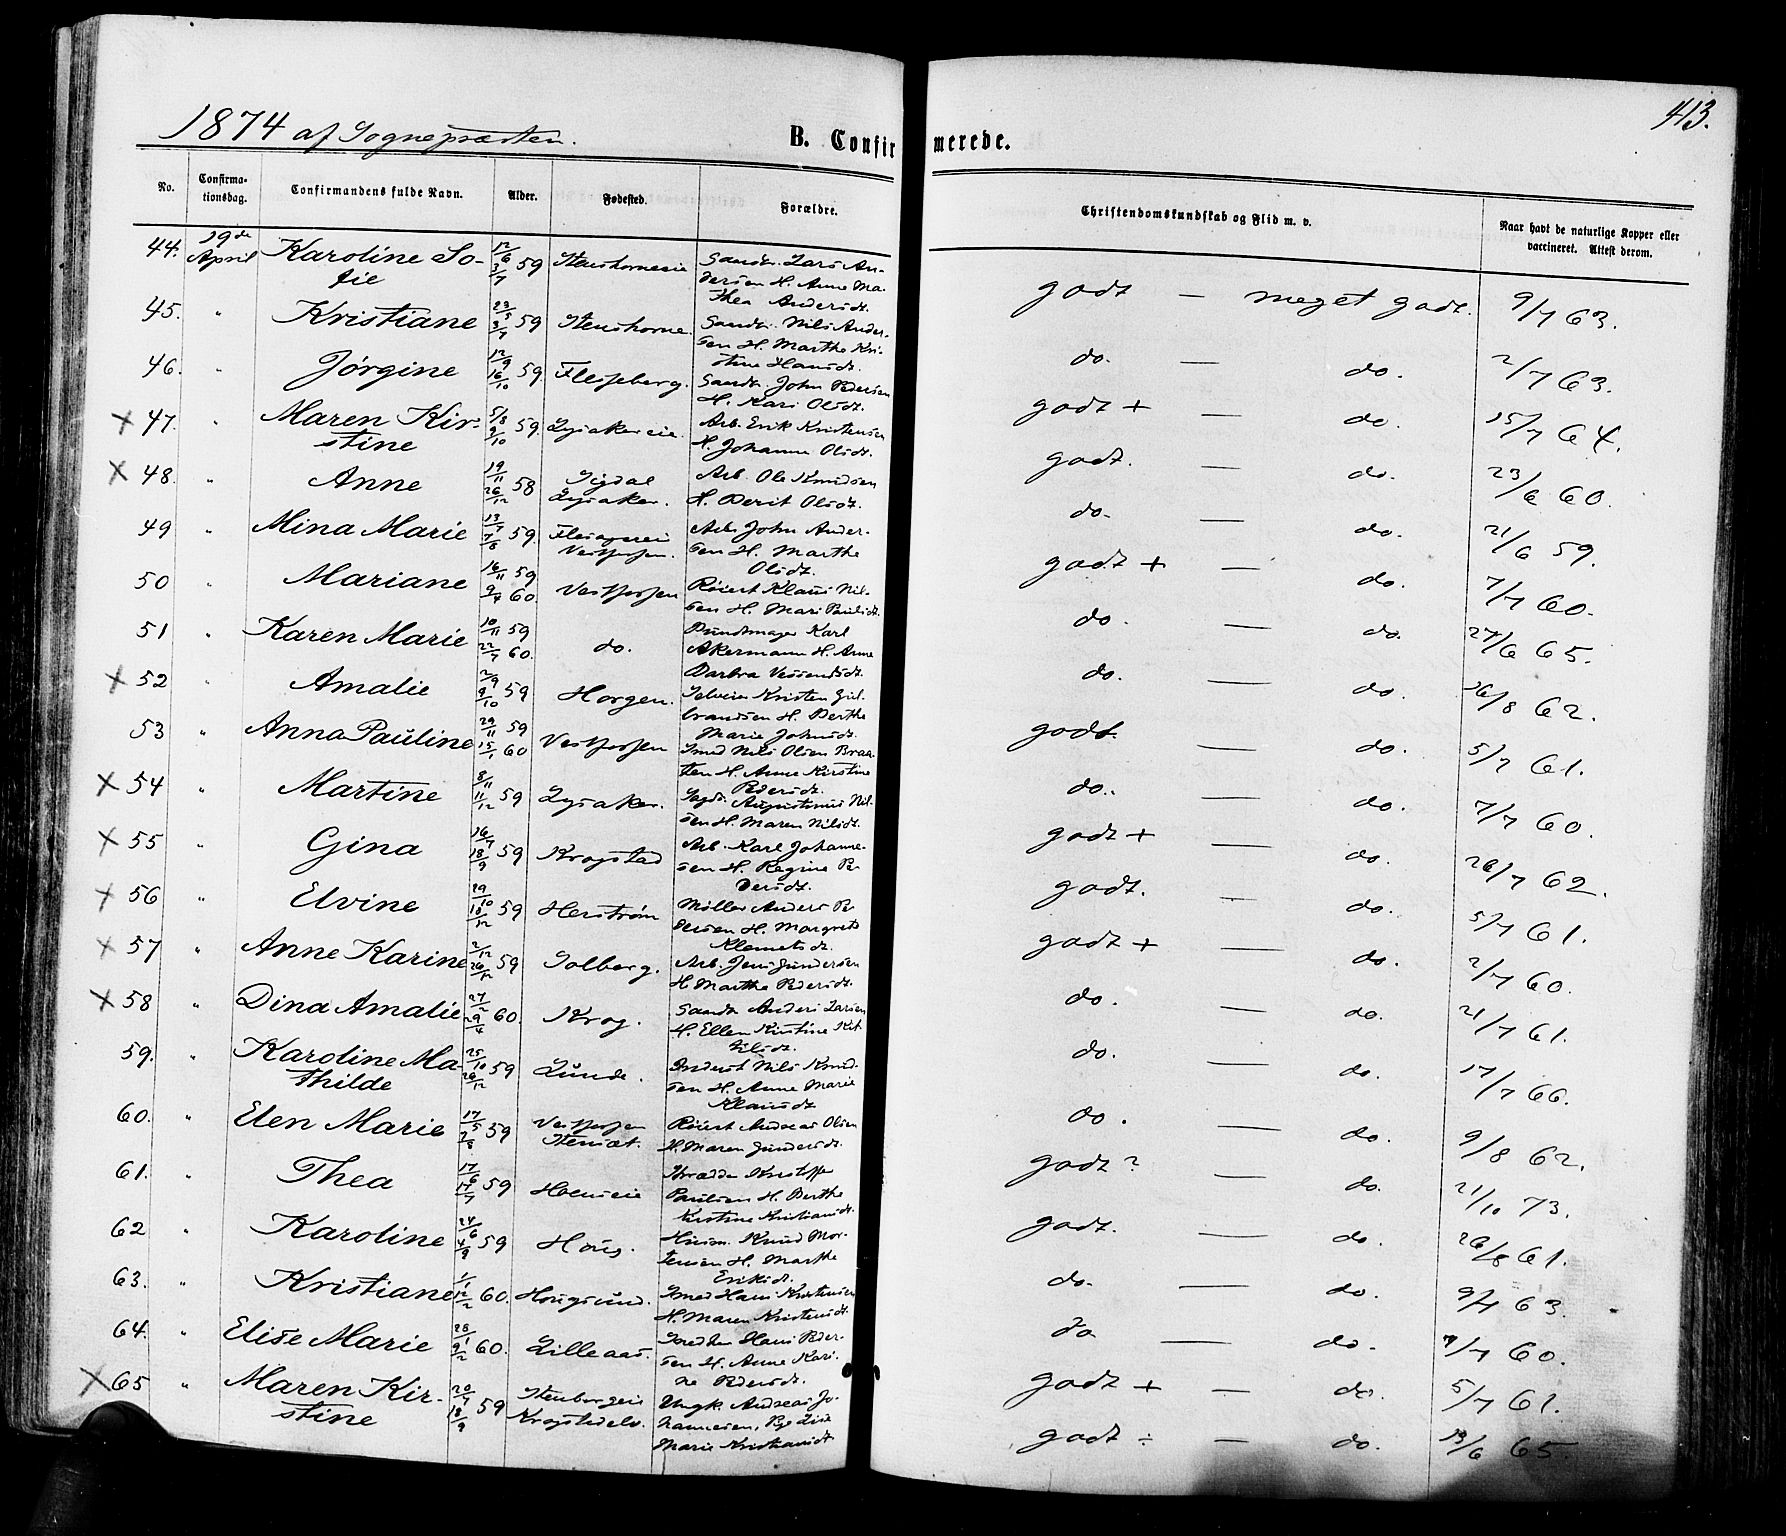 413.
1874 af Sognepræsten.
B. Confirmerede.
No. Confirmationsdag. Confirmandens fulde Navn. Alder. Fødested. Forældre. Christendomskundskab og Flid m. v. Naar havt de naturlige Kopper eller vaccineret. Attest derom.
44. 19de April Karoline Sofie 12/6 3/7 59 Stenshorneeie Lars Andersen H. Anne Mathea Andersdt. godt — meget godt. 9/7 63.
45. " Kristiane 23/5 3/7 59 Stenshorne. Nils Andersen H. Marthe Kristine Hansdt. do. — do. 2/7 63.
46. " Jørgine 12/9 16/10 59. Flesseberg. John Pedersen H. Kari Olsdt. godt + — do. 15/7 64.
x 47. " Maren Kirstine 5/8 9/10 59 Lysakereie. Arb. Erik Kristensen H. Johanne Olsdt. godt. — do. 23/6 60.
x 48. " Anne 19/11 26/12 58 Sigdal Lysaker. Arb. Ole Knudsen H. Berit Olsdt. do. — do. 21/6 59.
49 " Mina Marie 13/7 7/8 59. Vestfossen. Arb. John Andersen H. Marthe Olsdt. godt + — do. 7/7 60.
50 " Mariane 16/11 59 9/4 60. Vestfossen Klaus Nilsen H. Mari Paulsdt. do. — do. 27/6 65.
51 " Karen Marie 10/11 59 22/7 60. do. Bundtmager Karl Akermann H. Anne Barbra do. — do. 16/8 62.
x 52 " Amalie 2/9 9/10 59 Horgen. Selveier Kristen Gulbrandsen H. Berthe Marie Johnsdt. godt. — do. 5/7 61.
53 " Anna Pauline 29/11 59 15/1 60 Vestfossen Smed Nils Olsen Braaten H. Anne Kirstine Pedersdt. do. — do. 7/7 60.
x 54 " Martine 8/11 11/12 59 Lysaker. Augustinus Nilsen H. Maren Nilsdt. godt + — do. 26/7 62.
x 55 " Gina 16/7 18/9 59 Krogstad Arb. Karl Johannesen H. Regine Pedersdt. godt. — do. 5/7 61.
x 56 " Elvine 29/10 18/12 59 Herstrøm Møller Anders Pedersen H. Margrete Klemetsdt. godt + — do. 2/7 60.
x 57 " Anne Karine 2/12 26/12 59 Solberg. Arb. Jens Gundersen H. Marthe Pedersdt. do. — do. 21/7 61.
x 58 " Dina Amalie 27/2 29/4 60. Krog. Anders Larsen H. Ellen Kirstine do. — do. 17/7 66.
59. " Karoline Mathilde 25/10 26/12 59 Lunde. Inderst Nils Knudsen H. Anne Marie Klausdt do. — do. 9/8 62.
60. " Elen Marie 17/5 59 Vestfossen Andreas Olsen H. Maren Gundersdt. godt? — do. 21/10 73.
61. " Thea 17/6 17/7 59 Hoenseie Paulsen H. Berthe Kirstine Kristiansdt. godt. — do. 26/8 61.
62 " Karoline 24/6 4/9 59 Houg. Husm. Knud Mortensen H. Marthe Eriksdt. do. — do. 9/7 63.
63. " Kristiane 1/1 12/2 60. Hougsund. Smed Hans Kristensen H. Maren Kristensdt. do — do. 7/7 60.
64. " Elise Marie 28/1 9/2 60. Lilleaas. Hans Pedersen H. Anne Karine Pedersdt. godt + — do. 5/7 61.
x 65 " Maren Kirstine 20/7 18/9 59 Stenbergeie Ungk. Andreas Johannesen, Marie Kristiansdt godt ÷ — do. 13/6 65.